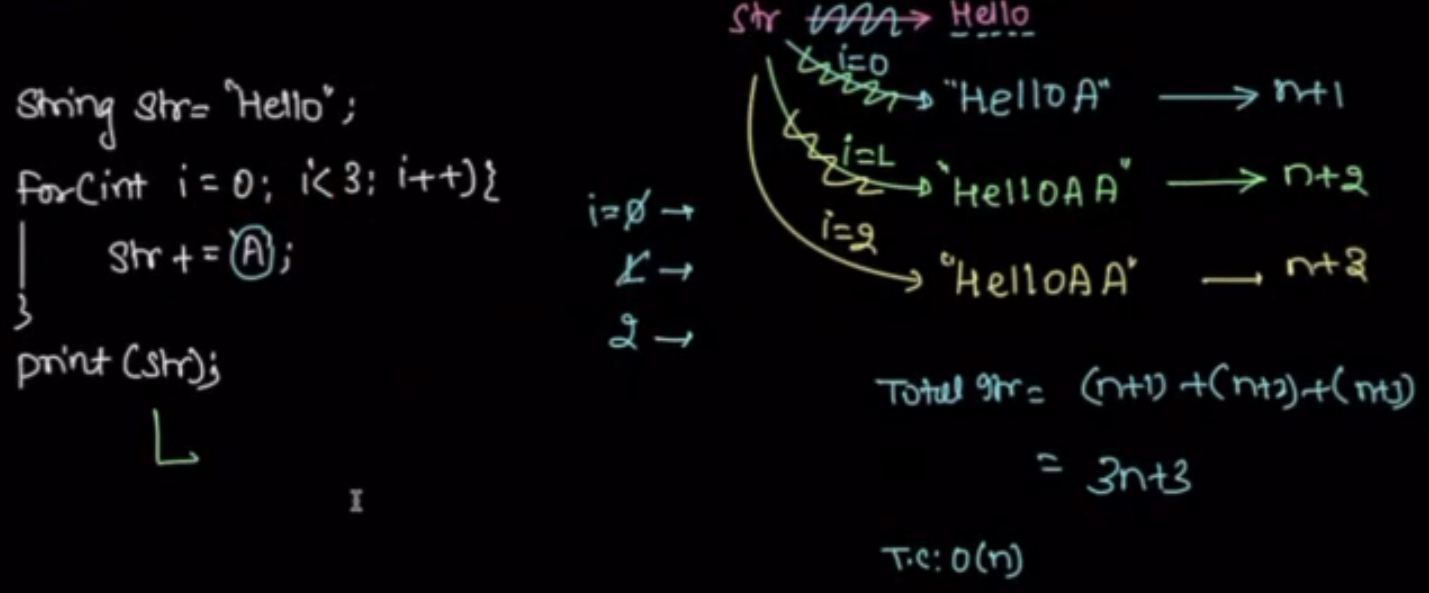 String str= "Hello";
for(int i=0; i<3; i++){
str+='A';
}
print(str);
i=0 →
1 →
2 →
str → Hello
i=0
"HelloA" → n+1
i=1
"HelloAA" → n+2
i=2
"HelloAA" — n+3
Total = (n+1)+(n+2)+(n+3)
= 3n+3
T.C: O(n)